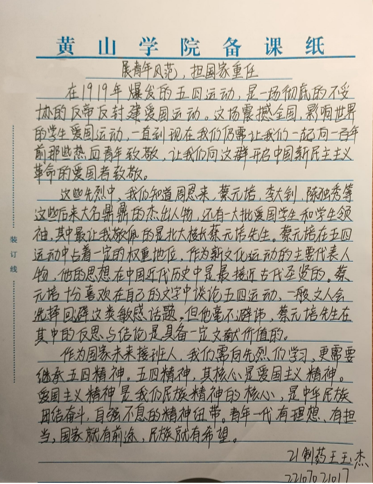 黄山学院备课纸
展青年风范，担国家重任
在1919年爆发的五四运动，是一场彻底的不妥
协的反帝反封建爱国运动。这场震撼全国，影响世界
的学生爱国运动，一直到现在我们仍需让我们一起向一百年
前那些热血青年致敬，让我们向这群开启中国新民主主义
革命的爱国者致敬。
这些先烈中，我们知道周恩来，蔡元培，李大钊，陈独秀等
这些后来大名鼎鼎的杰出人物，还有大批爱国学生和学生领
袖，其中最让我敬佩的是北大校长蔡元培先生。蔡元培在五四
运动中占着一定的权重地位，作为新文化运动的主要代表人
物，他的思想在中国近代历史中是最接近古代圣贤的。蔡
元培十分喜欢在自己的文字中谈论五四运动，一般文人会
选择回避这类敏感话题，但他毫不避讳，蔡元培先生在
其中的反思与结论是具备一定文献价值的。
作为国家未来接班人，我们需向先烈们学习，更需要
继承五四精神。五四精神，其核心是爱国主义精神。
爱国主义精神是我们民族精神的核心，是中华民族
团结奋斗，自强不息的精神纽带。青年一代有理想，有担
当，国家就有前途，民族就有希望。
21制药王玉杰
22107021017
装订线